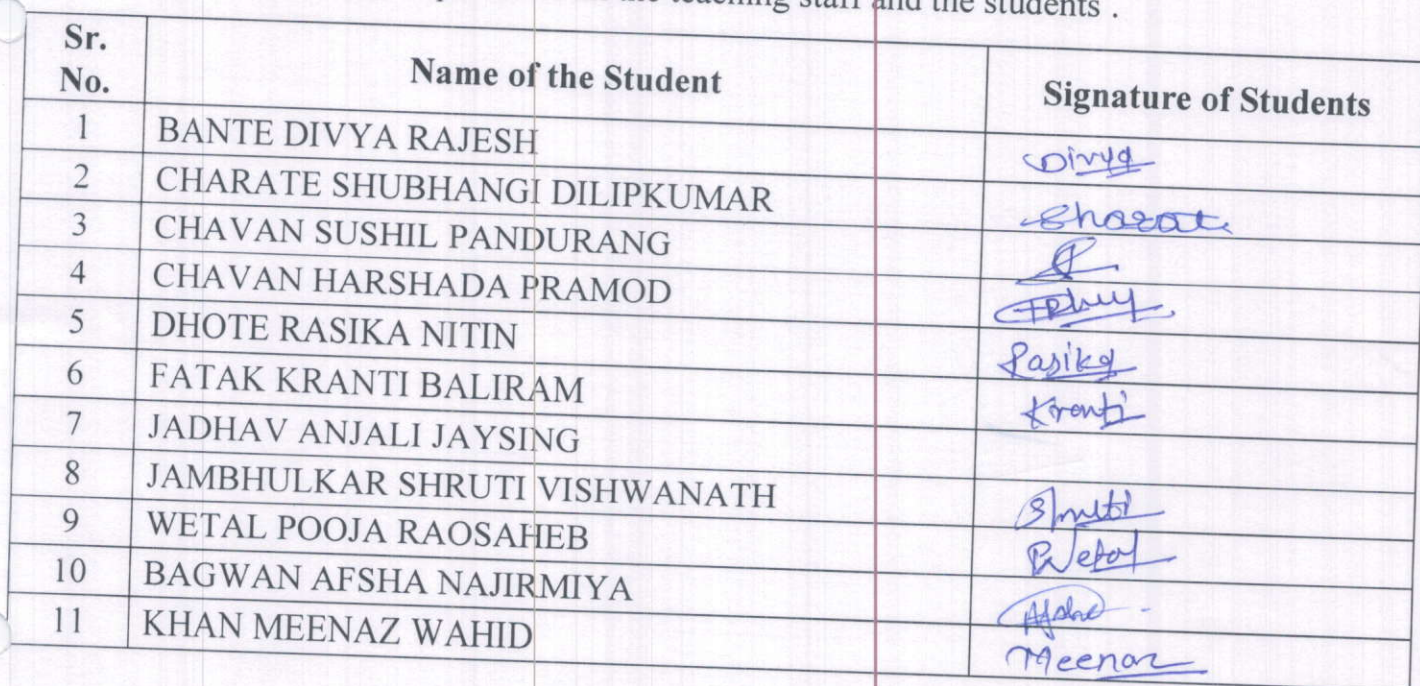 the teaching staff and the students .
Sr. No. Name of the Student Signature of Students
1 BANTE DIVYA RAJESH Divya
2 CHARATE SHUBHANGI DILIPKUMAR
3 CHAVAN SUSHIL PANDURANG
4 CHAVAN HARSHADA PRAMOD
5 DHOTE RASIKA NITIN Rasika
6 FATAK KRANTI BALIRAM Kranti
7 JADHAV ANJALI JAYSING
8 JAMBHULKAR SHRUTI VISHWANATH Shruti
9 WETAL POOJA RAOSAHEB PWetal
10 BAGWAN AFSHA NAJIRMIYA Afsha
11 KHAN MEENAZ WAHID Meenaz